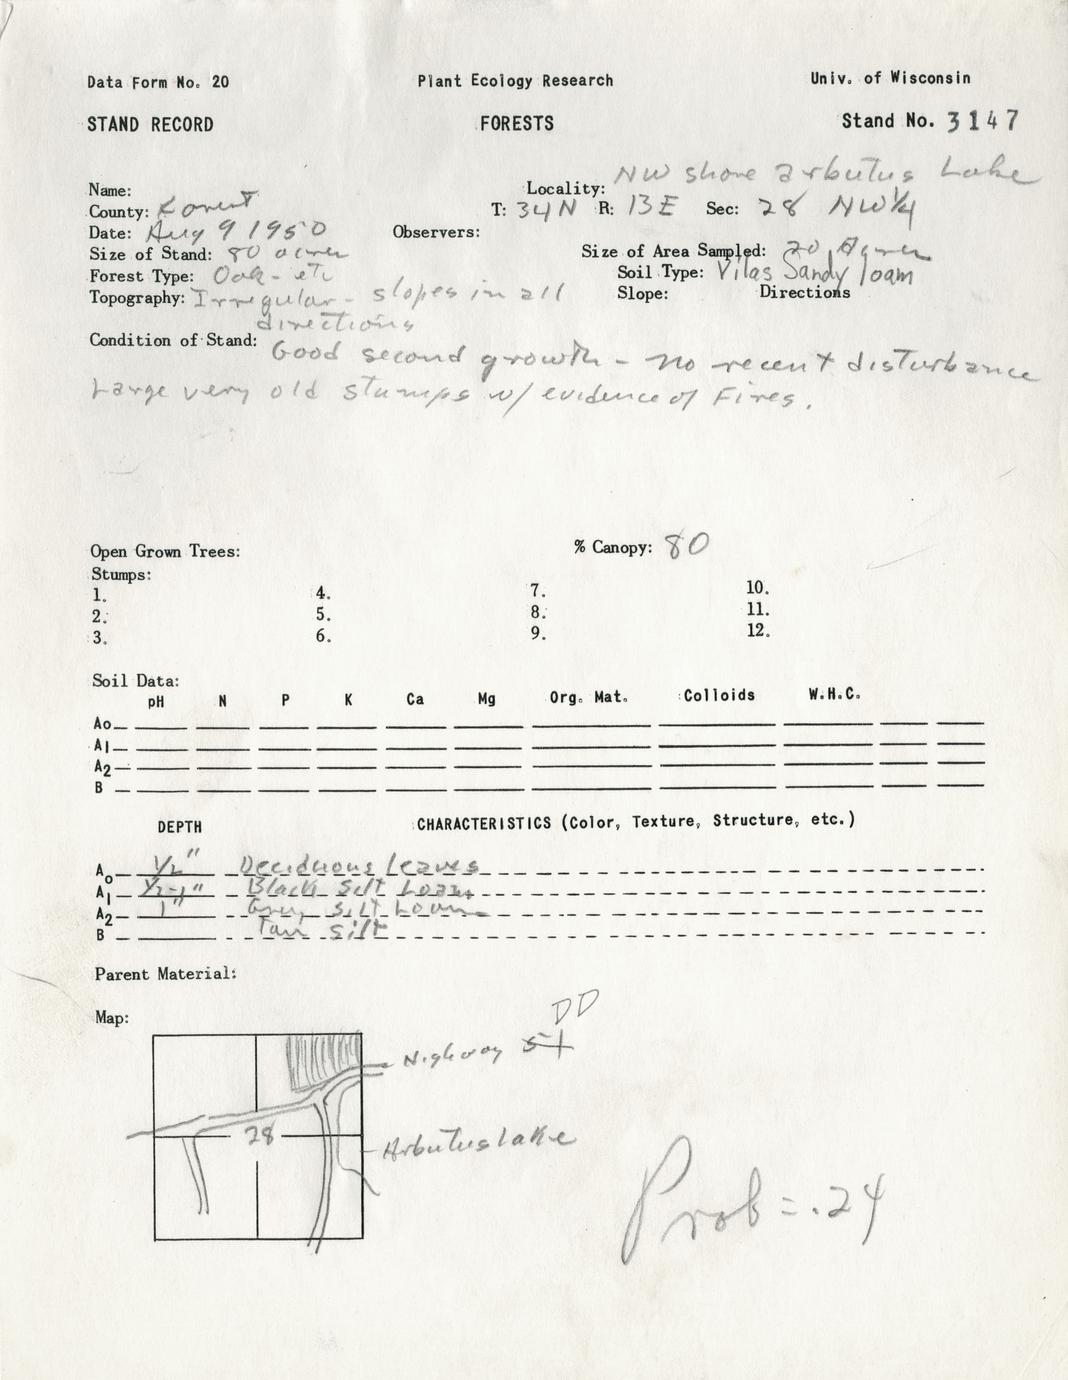 Data Form No. 20 Plant Ecology Research Univ. of Wisconsin
STAND RECORD FORESTS Stand No. 3147
Name: Locality: NW shore arbutus Lake
County: Forest T: 34N R: 13E Sec: 28 NW¼
Date: Aug 9 1950 Observers:
Size of Stand: 80 acres Size of Area Sampled: 20 Acres
Forest Type: Oak - etc Soil Type: Vilas Sandy loam
Topography: Irregular - slopes in all Slope: Directions
directions
Condition of Stand: Good second growth - no recent disturbance
Large very old stumps w/ evidence of Fires.
Open Grown Trees: % Canopy: 80
Stumps:
1. 4. 7. 10.
2. 5. 8. 11.
3. 6. 9. 12.
Soil Data:
pH N P K Ca Mg Org. Mat. Colloids W.H.C.
Ao
A1
A2
B
DEPTH CHARACTERISTICS (Color, Texture, Structure, etc.)
Ao 1/2" Deciduous leaves
A1 1/2-1" Black Silt Loam
A2 1" Grey silt Loam
B Tan silt
Parent Material:
Map:
DD
Highway
28
Arbutus lake
Prob = .24